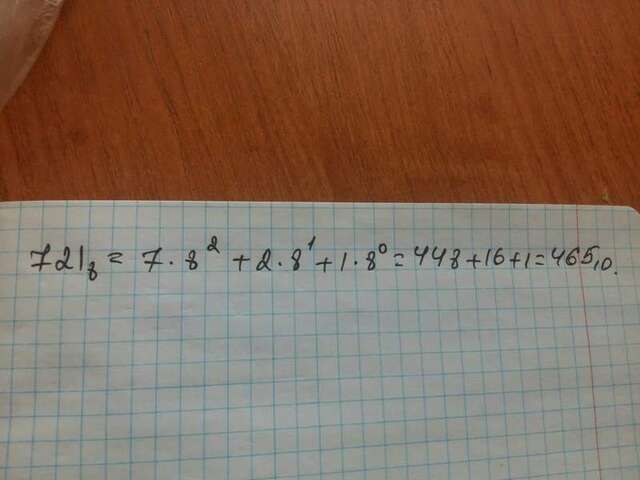 721₈ = 7 · 8² + 2 · 8¹ + 1 · 8⁰ = 448 + 16 + 1 = 465₁₀.